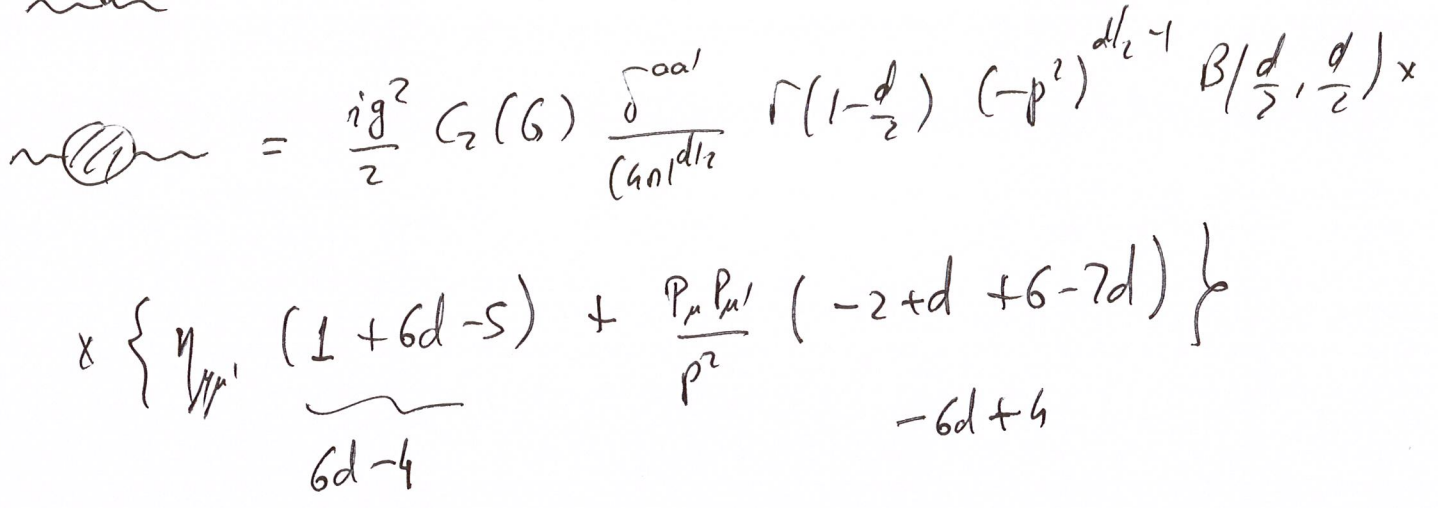 = ig²/2 C₂(G) δ^{aa'}/(4π)^{d/2} Γ(1-d/2) (-p²)^{d/2-1} B(d/2, d/2) ×
× { η_{μμ'} (1+6d-5) + p_μ p_{μ'}/p² (-2+d+6-7d) }
6d-4 -6d+4